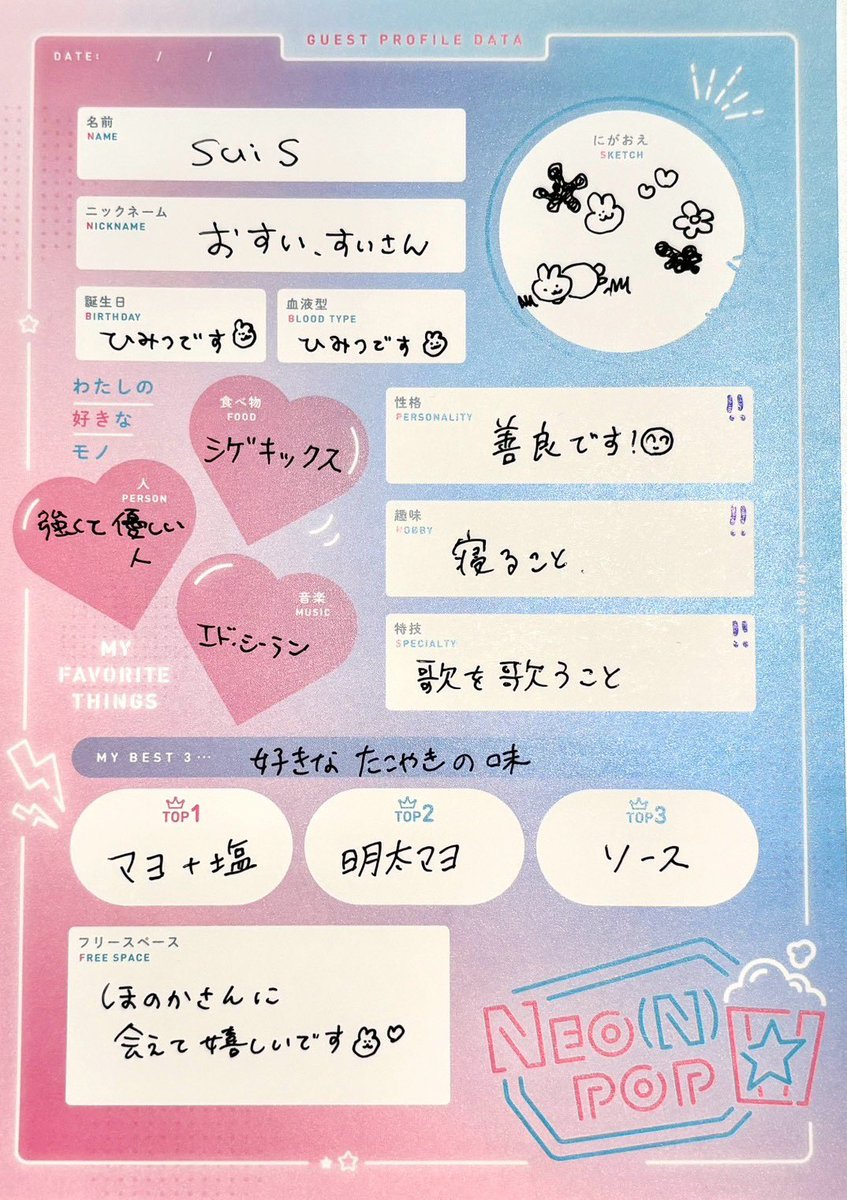 GUEST PROFILE DATA
DATE: / /
名前
NAME
suis
にがおえ
SKETCH
ニックネーム
NICKNAME
おすい、すいさん
誕生日
BIRTHDAY
ひみつです
血液型
BLOOD TYPE
ひみつです
わたしの
好きな
モノ
食べ物
FOOD
シゲキックス
人
PERSON
強くて優しい
人
音楽
MUSIC
エド・シーラン
MY
FAVORITE
THINGS
性格
PERSONALITY
!!
善良です!
趣味
HOBBY
!!
寝ること.
特技
SPECIALTY
!!
歌を歌うこと
MY BEST 3… 好きなたこやきの味
TOP1
マヨ+塩
TOP2
明太マヨ
TOP3
ソース
フリースペース
FREE SPACE
ほのかさんに
会えて嬉しいです
NEO(N)
POP